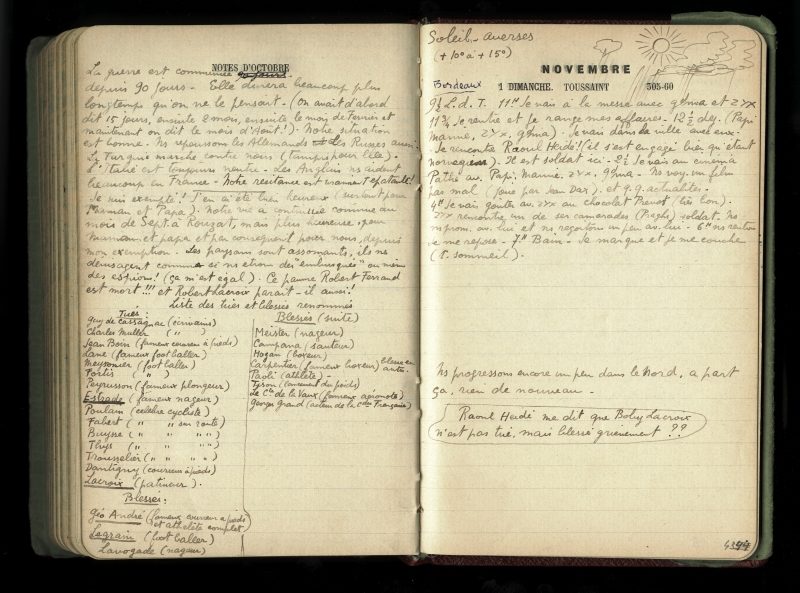 NOTES D'OCTOBRE
La guerre est commencée
depuis 90 jours. Elle durera beaucoup plus
longtemps qu'on ne le pensait. (On avait d'abord
dit 15 jours, ensuite 2 mois, ensuite le mois de Fevrier et
maintenant on dit le mois d'Aout!). Notre situation
est bonne. Ns repoussons les Allemands et les Russes aussi.
La Turquie marche contre nous (tampis pour elle).
L'Italie est toujours neutre. Les Anglais ns aident
beaucoup en France. Notre résistance est vraiment epatante!
Je suis exempté! J'en ai été bien heureux (surtout pour
Maman et Papa). Notre vie a continuée comme au
mois de Sept. à Rouzat, mais plus heureuse, pour
maman et papa et par consequent pour nous, depuis
mon exemption. Les paysans sont assomants, ils ns
devisagent comme si ns etions des "embusqués" ou même
des espions! (ça m'est egal). Ce pauvre Robert Ferrand
est mort!!! et Robert Lacroix parait-il aussi!
Liste des tués et blessés renommés
Tués:
Guy de Cassagnac (écrivains)
Charles Muller ( " )
Jean Boin (fameux coureur à pieds)
Lane (fameux foot baller)
Meysonier (foot baller)
Portis ( " )
Peyrusson (fameux plongeur)
Estrade (fameux nageur)
Poulain (célèbre cycliste)
Fabert ( " " sur route)
Buysse ( " " " )
Thys ( " " " )
Trousselier ( " " " )
Dantigny (coureur à pieds)
Lacroix (patineur).
Blessés:
Géo André (fameux coureur à pieds
et athlète complet)
Legrain (foot baller)
Lavogade (nageur)
Blessés (suite)
Meister (nageur)
Campana (sauteur)
Hogan (boxeur)
Carpentier (fameux boxeur) blessé en
auto.
Paoli (athlète).
Tyson (lancement du poids)
Le Cte de la Vaux (fameux aeronote)
Georges Grand (acteur de la Cdie Française)
Soleil - averses
(+10° à +15°)
NOVEMBRE
Bordeaux
1 DIMANCHE. TOUSSAINT 305-60
9½ L. d. T. 11h Je vais à la messe avec gdma et ZYX
11¾ Je rentre et je range mes affaires. 12½ dej. (Papi
Manné, ZYX, gdma). Je vais dans la ville avec eux.
Je rencontre Raoul Heidé! (il s'est engagé bien qu'étant
norvegien). Il est soldat ici. 2½ Je vais au cinema
Pathé av. Papi, Manné, ZYX, gdma. Ns voy. un film
pas mal (joué par Jean Dax) et q.q. actualités.
4h Je vais gouter av. ZYX au chocolat Prevot (très bon).
ZYX rencontre un de ses camerades soldat. Ns
ns prom. av. lui et ns regoutons un peu av. lui. 6h ns rentrons
je me repose. 7h Bain. Je marque et je me couche
(T. sommeil).
Ns progressons encore un peu dans le Nord, a part
ça, rien de nouveau.
Raoul Heidé me dit que Boby Lacroix
n'est pas tué, mais blessé grievement ??